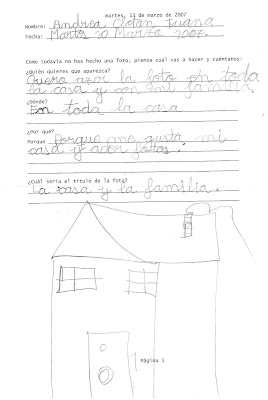 martes, 13 de marzo de 2007
Nombre: Andrea Clotán Juana
Fecha: Martes 20 Marzo 2007.
Como todavía no has hecho una foto, piensa cual vas a hacer y cuéntanos:
¿Quién quieres que aparezca?
Quiero azer la foto en toda
la casa y con mi familia
¿Dónde?
En toda la casa
¿Por qué?
Porque Porque me gusta mi
casa y acer fotos.
¿Cuál sería el título de la foto?
La casa y la familia.
Página 1